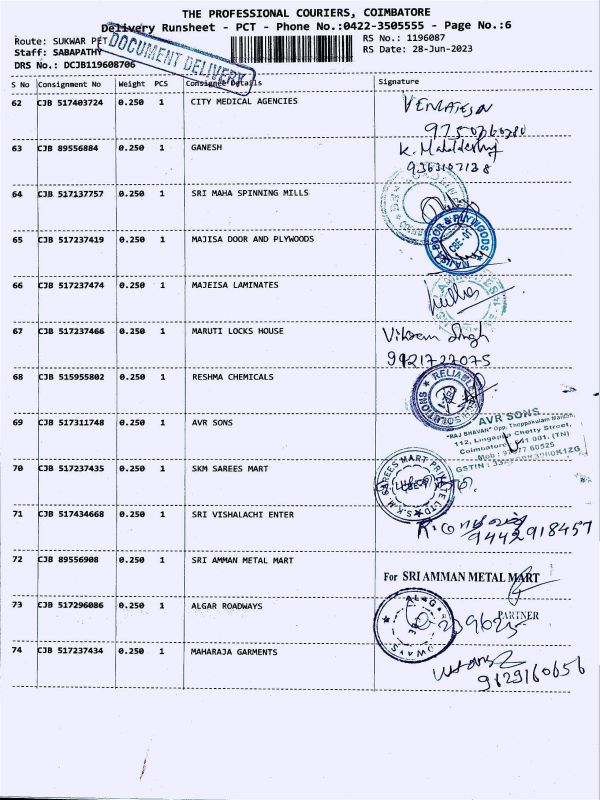 THE PROFESSIONAL COURIERS, COIMBATORE
Delivery Runsheet - PCT - Phone No.:0422-3505555 - Page No.:6
Route: SUKWAR PET
RS No.: 1196087
Staff: SABAPATHY
RS Date: 28-Jun-2023
DRS No.: DCJB119608706
DOCUMENT DELIVERY
S No Consignment No Weight PCS Consignee Details Signature
62 CJB 517403724 0.250 1 CITY MEDICAL AGENCIES
VENKATESAN
63 CJB 89556884 0.250 1 GANESH
9363107138
64 CJB 517137757 0.250 1 SRI MAHA SPINNING MILLS
65 CJB 517237419 0.250 1 MAJISA DOOR AND PLYWOODS
MAJISA DOOR & PLYWOODS
CBE-1
66 CJB 517237474 0.250 1 MAJEISA LAMINATES
67 CJB 517237466 0.250 1 MARUTI LOCKS HOUSE
Vikram Singh
9421727075
68 CJB 515955802 0.250 1 RESHMA CHEMICALS
RELIABLE SOLUTIONS
69 CJB 517311748 0.250 1 AVR SONS
AVR SONS
"RAJ BHAVAN" Opp. Theppakulam Maidan,
112, Lingappa Chetty Street,
Coimbatore 641 001. (TN)
GSTIN :
70 CJB 517237435 0.250 1 SKM SAREES MART
S.K.M. SAREES MART PRIVATE LTD
71 CJB 517434668 0.250 1 SRI VISHALACHI ENTER
9442918457
72 CJB 89556908 0.250 1 SRI AMMAN METAL MART
For SRI AMMAN METAL MART
PARTNER
73 CJB 517296086 0.250 1 ALGAR ROADWAYS
74 CJB 517237434 0.250 1 MAHARAJA GARMENTS
9629160656